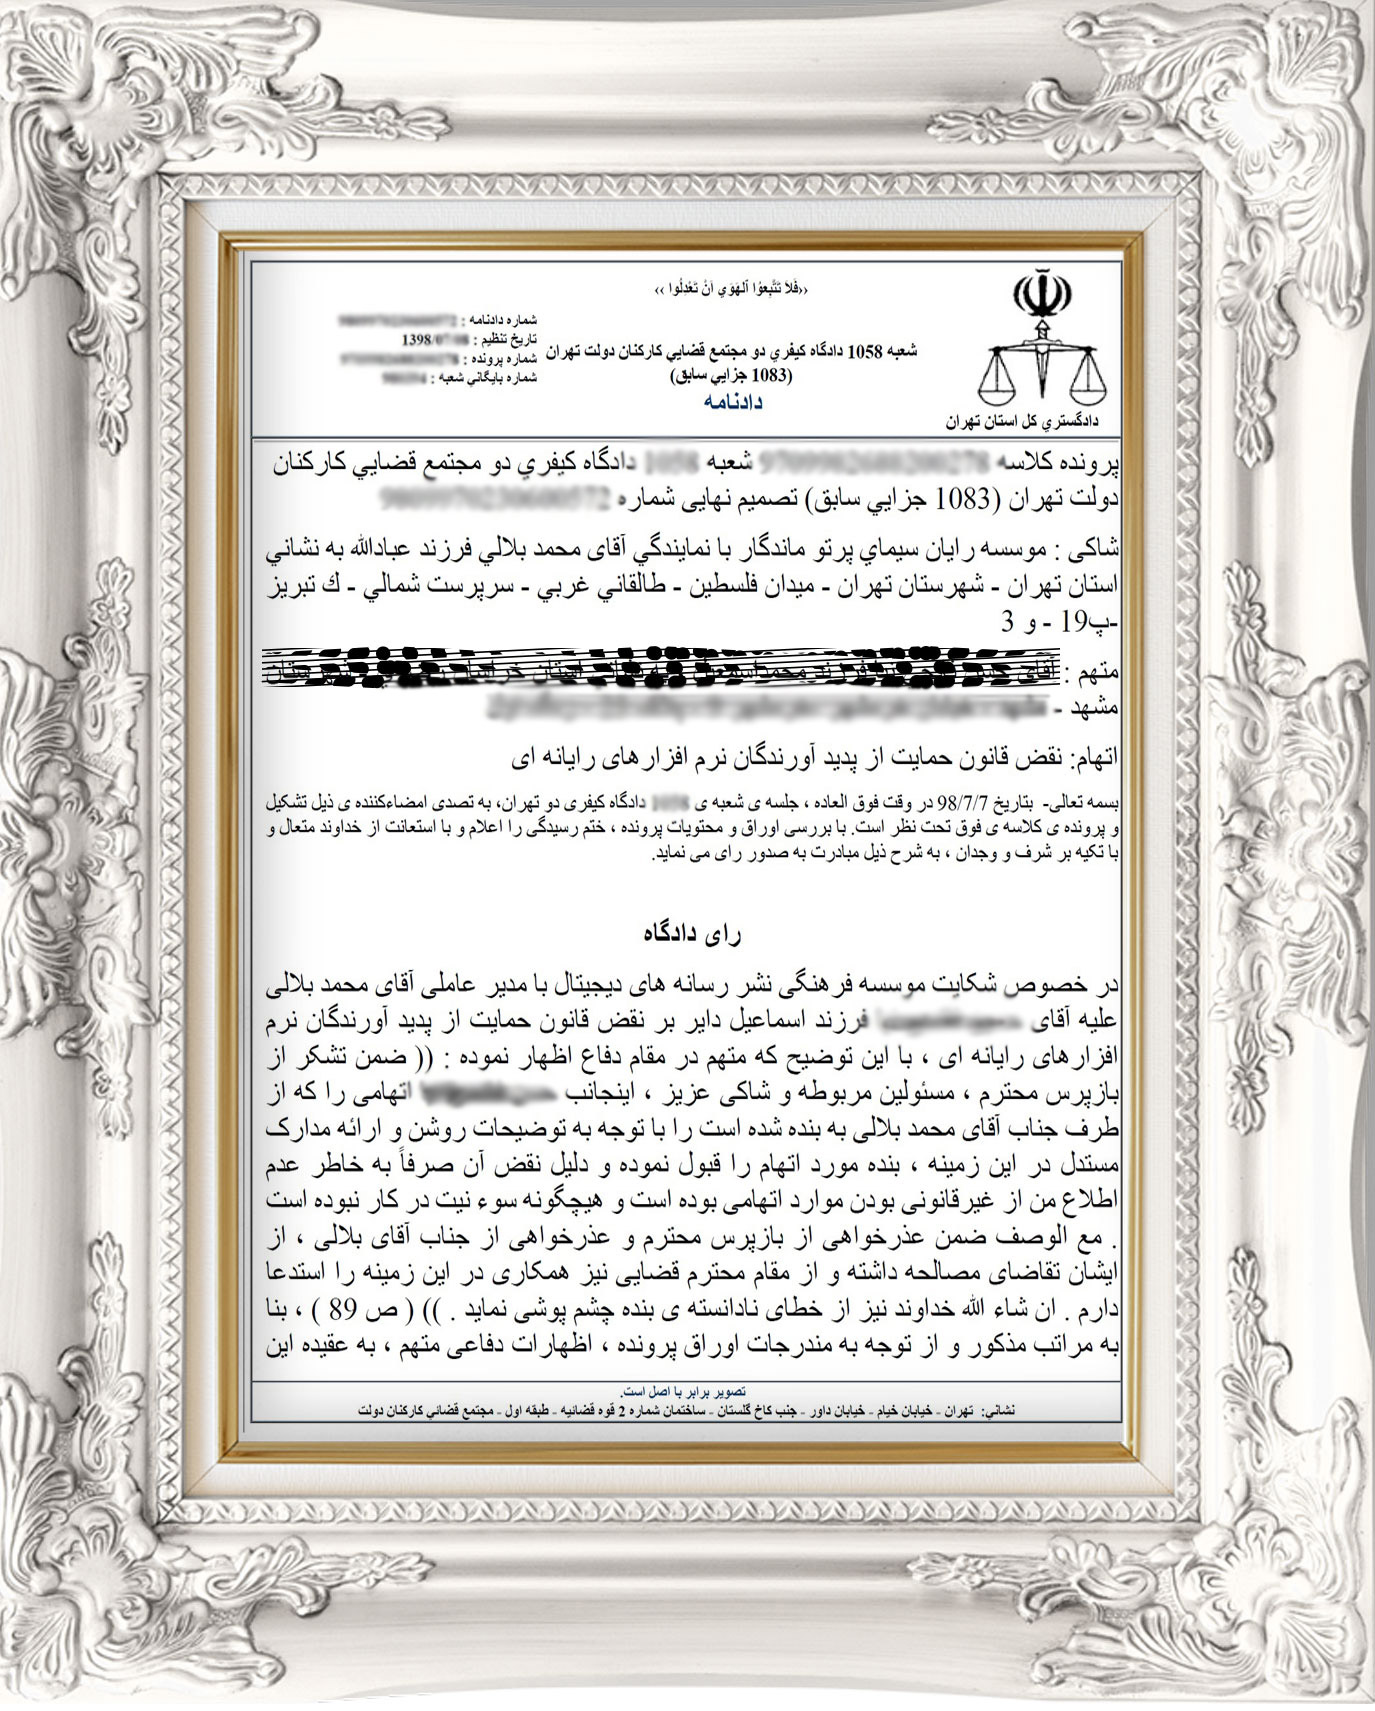 ‹‹فَلَا تَتَّبِعُوا ٱلهَوَي أَنْ تَعْدِلُوا ››
شعبه 1058 دادگاه كيفري دو مجتمع قضايي كاركنان دولت تهران
(1083 جزايي سابق)
دادنامه
شماره دادنامه :
تاریخ تنظیم : 1398/
شماره پرونده :
شماره بايگاني شعبه :
دادگستري كل استان تهران
پرونده کلاسه شعبه دادگاه كيفري دو مجتمع قضايي كاركنان
دولت تهران (1083 جزايي سابق) تصمیم نهایی شماره
شاکی : موسسه رايان سيماي پرتو ماندگار با نمايندگي آقای محمد بلالي فرزند عبادالله به نشاني
استان تهران - شهرستان تهران - ميدان فلسطين - طالقاني غربي - سرپرست شمالي - ك تبريز
-پ19 - و 3
متهم :
مشهد -
اتهام: نقض قانون حمایت از پدید آورندگان نرم افزارهای رایانه ای
بسمه تعالی- بتاریخ 98/7/7 در وقت فوق العاده ، جلسه ی شعبه ی دادگاه کیفری دو تهران، به تصدی امضاءکننده ی ذیل تشکیل
و پرونده ی کلاسه ی فوق تحت نظر است. با بررسی اوراق و محتویات پرونده ، ختم رسیدگی را اعلام و با استعانت از خداوند متعال و
با تکیه بر شرف و وجدان ، به شرح ذیل مبادرت به صدور رای می نماید.
رای دادگاه
در خصوص شکایت موسسه فرهنگی نشر رسانه های دیجیتال با مدیر عاملی آقای محمد بلالی
علیه آقای فرزند اسماعیل دایر بر نقض قانون حمایت از پدید آورندگان نرم
افزارهای رایانه ای ، با این توضیح که متهم در مقام دفاع اظهار نموده : (( ضمن تشکر از
بازپرس محترم ، مسئولین مربوطه و شاکی عزیز ، اینجانب اتهامی را که از
طرف جناب آقای محمد بلالی به بنده شده است را با توجه به توضیحات روشن و ارائه مدارک
مستدل در این زمینه ، بنده مورد اتهام را قبول نموده و دلیل نقض آن صرفاً به خاطر عدم
اطلاع من از غیرقانونی بودن موارد اتهامی بوده است و هیچگونه سوء نیت در کار نبوده است
. مع الوصف ضمن عذرخواهی از بازپرس محترم و عذرخواهی از جناب آقای بلالی ، از
ایشان تقاضای مصالحه داشته و از مقام محترم قضایی نیز همکاری در این زمینه را استدعا
دارم . ان شاء الله خداوند نیز از خطای نادانسته ی بنده چشم پوشی نماید . )) ( ص 89 ) ، بنا
به مراتب مذکور و از توجه به مندرجات اوراق پرونده ، اظهارات دفاعی متهم ، به عقیده این
تصویر برابر با اصل است.
نشاني: تهران - خيابان خيام - خيابان داور - جنب كاخ گلستان - ساختمان شماره 2 قوه قضائيه - طبقه اول - مجتمع قضائي كاركنان دولت